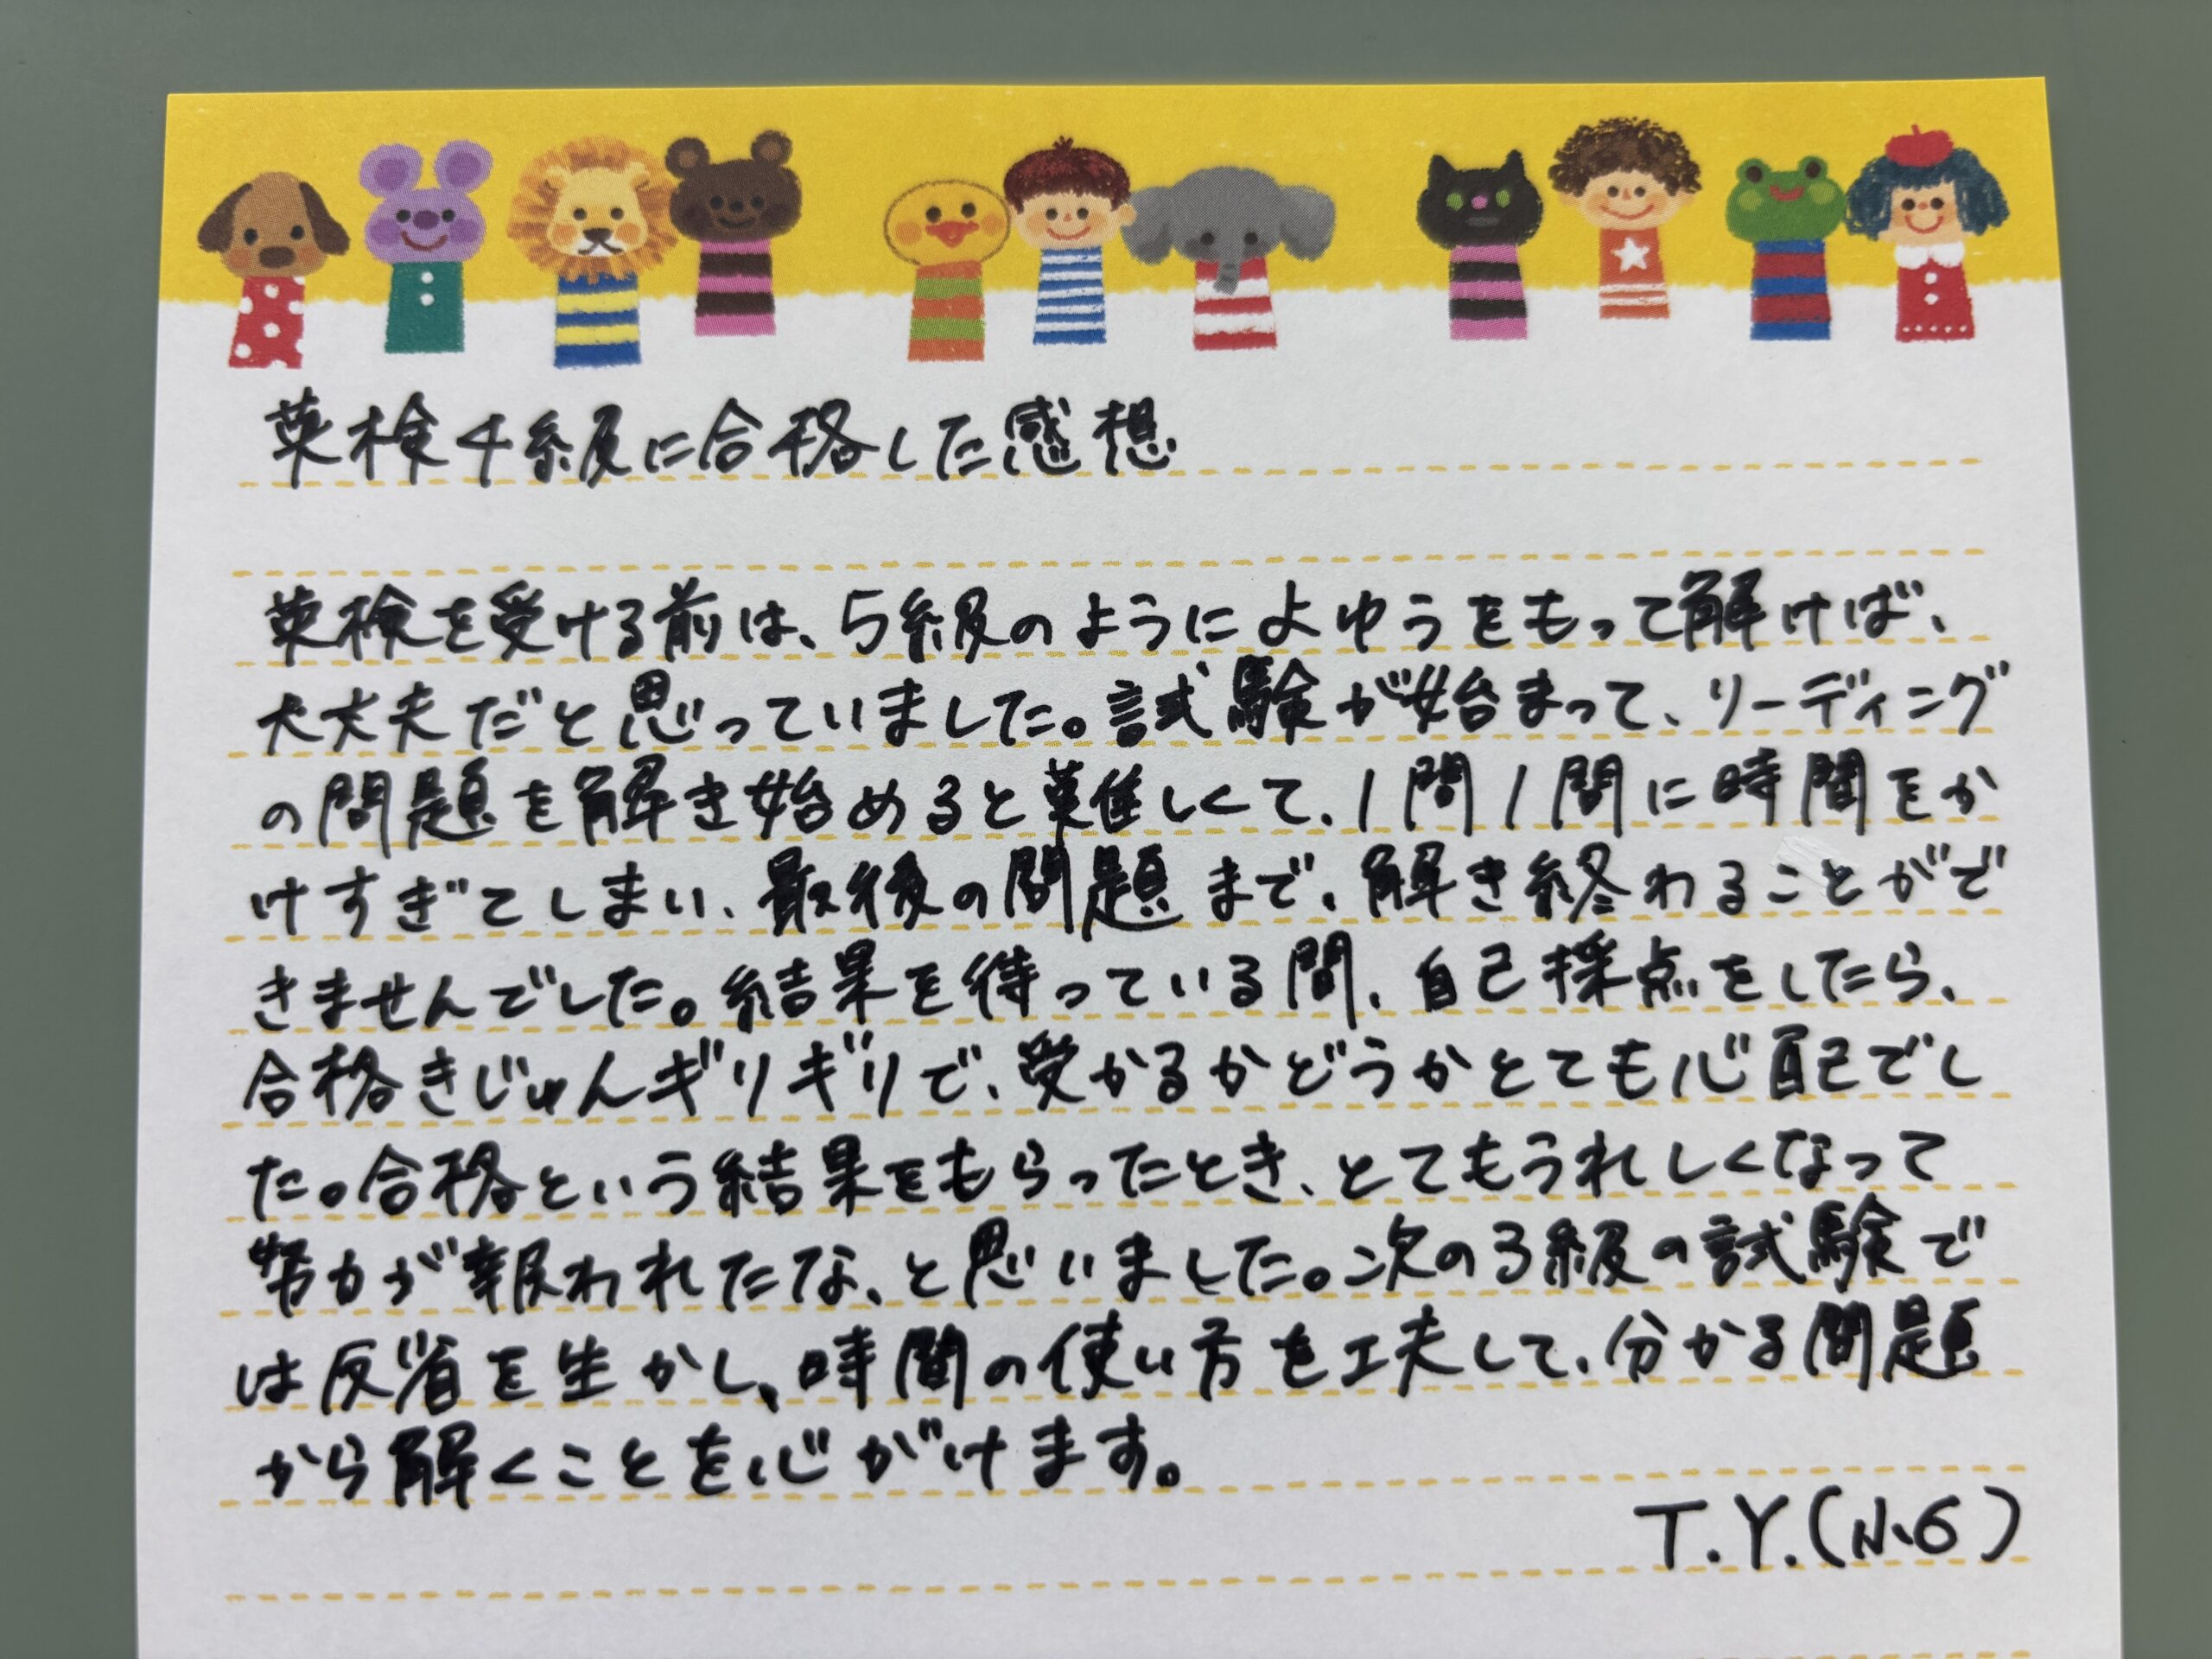 英検4級に合格した感想
英検を受ける前は、5級のようによゆうをもって解けば、
大丈夫だと思っていました。試験が始まって、リーディング
の問題を解き始めると難しくて、1問1問に時間をか
けすぎてしまい、最後の問題まで、解き終わることがで
きませんでした。結果を待っている間、自己採点をしたら、
合格きじゅんギリギリで、受かるかどうかとても心配でし
た。合格という結果をもらったとき、とてもうれしくなって
努力が報われたな、と思いました。次の3級の試験で
は反省を生かし、時間の使い方を工夫して、分かる問題
から解くことを心がけます。
T.Y.(小6)